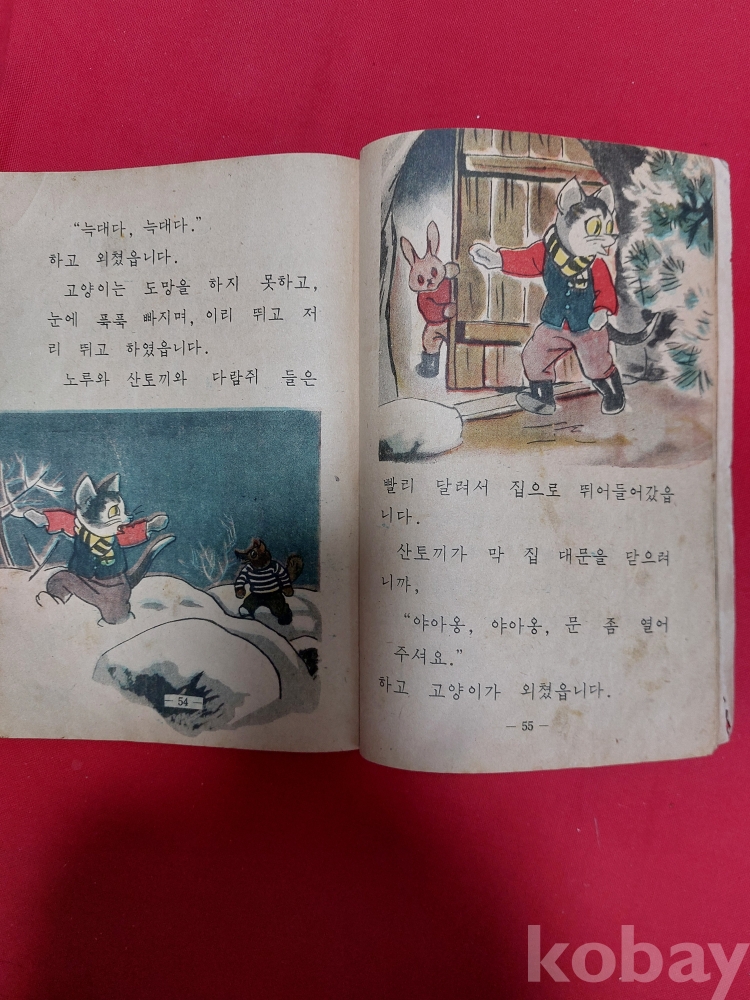 “늑대다, 늑대다.”
하고 외쳤읍니다.
고양이는 도망을 하지 못하고,
눈에 푹푹 빠지며, 이리 뛰고 저
리 뛰고 하였읍니다.
노루와 산토끼와 다람쥐 들은
— 54 —
빨리 달려서 집으로 뛰어들어갔읍
니다.
산토끼가 막 집 대문을 닫으려
니까,
“야아옹, 야아옹, 문 좀 열어
주셔요.”
하고 고양이가 외쳤읍니다.
— 55 —
kobay